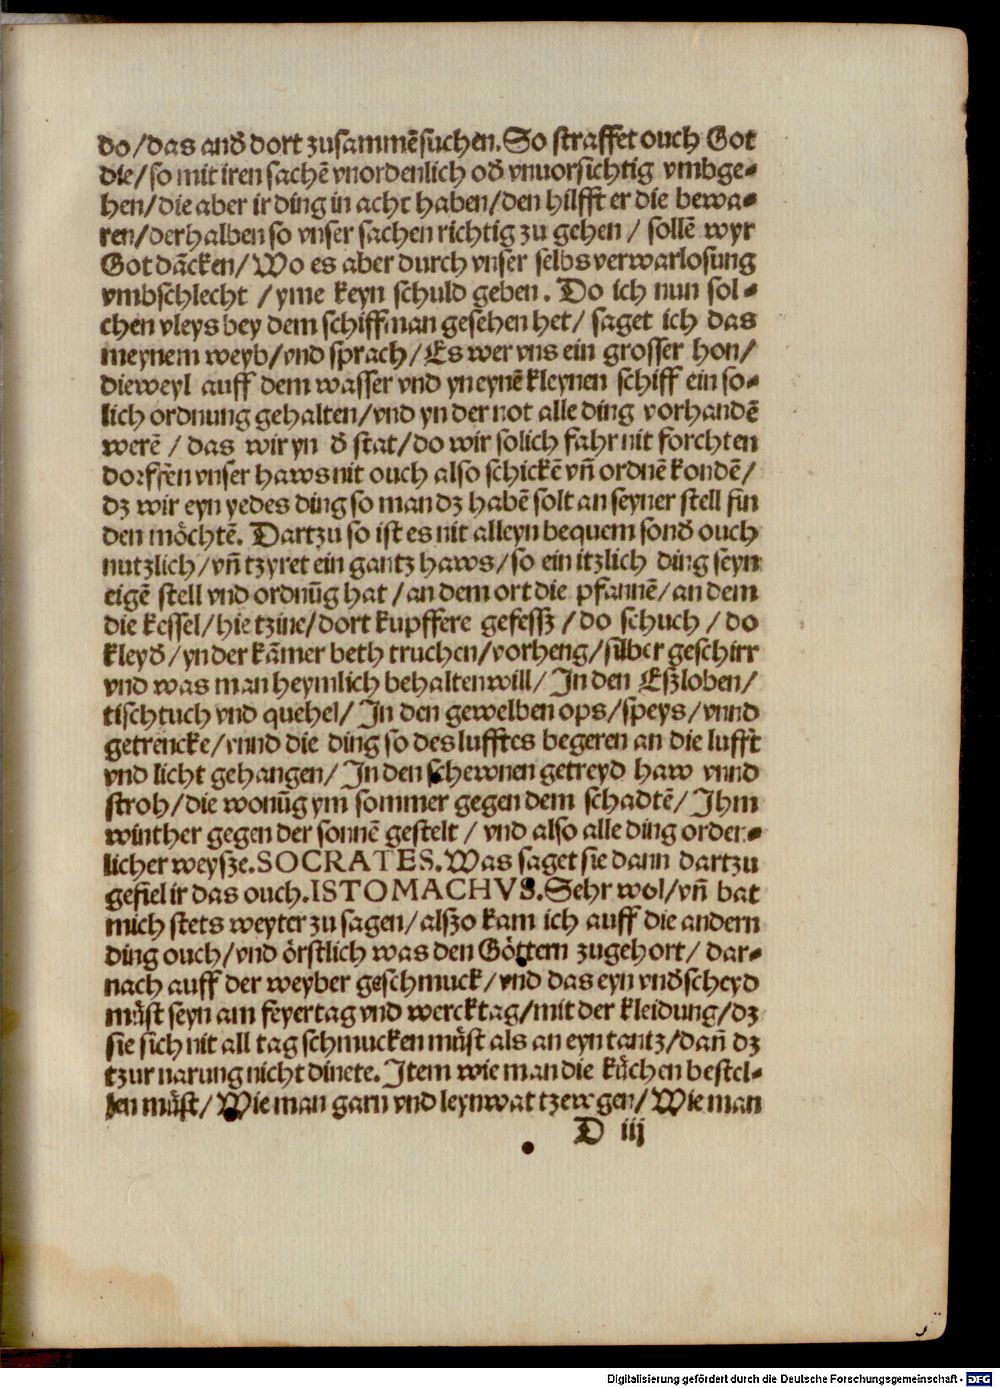 do/das and̕ dort zusammẽsuchen. So straffet ouch Got
die/so mit iren sachẽ vnordenlich od̕ vnuorsichtig vmbge-
hen/die aber ir ding in acht haben/den hilfft er die bewa-
ren/derhalben so vnser sachen richtig zu gehen/ sollẽ wyr
Got dãcken/Wo es aber durch vnser selbs verwarlosung
vmbschlecht /yme keyn schuld geben. Do ich nun sol-
chen vleys bey dem schiffman gesehen het/ saget ich das
meynem weyb/vnd sprach/Es wer vns ein grosser hon/
dieweyl auff dem wasser vnd yn eynẽ kleynen schiff ein so-
lich ordnung gehalten/vnd yn der not alle ding vorhandẽ
werẽ/ das wir yn d̕ stat/do wir solich fahr nit forchten
dorffẽn vnser haws nit ouch also schickẽ vñ ordnẽ kondẽ/
dz wir eyn yedes ding so man dz habẽ solt an seyner stell fin
den möchtẽ. Dartzu so ist es nit alleyn bequem sond̕ ouch
nutzlich/vñ tzyret ein gantz haws/so ein itzlich ding seyn
eigẽ stell vnd ordnũg hat/an dem ort die pfannẽ/an dem
die kessel/hie tzine/dort kupffere gefessz/do schuch/do
kleyd̕/yn der kãmer beth truchen/vorheng/silber geschirr
vnd was man heymlich behalten will/In den Eßloben/
tischtuch vnd quehel/In den gewelben ops/speys/vnnd
getrencke/vnnd die ding so des lufftes begeren an die lufft
vnd licht gehangen/In den schewnen getreyd haw vnnd
stroh/die wonũg ym sommer gegen dem schadtẽ/Ihm
winther gegen der sonnẽ gestelt/ vnd also alle ding order-
licher weysze. SOCRATES. Was saget sie dann dartzu
gefiel ir das ouch. ISTOMACHVS. Sehr wol/vñ bat
mich stets weyter zu sagen/alszo kam ich auff die andern
ding ouch/vnd örstlich was den Göttern zugehort/ dar-
nach auff der weyber geschmuck/vnd das eyn vnd̕scheyd
můst seyn am feyertag vnd wercktag/mit der kleidung/dz
sie sich nit all tag schmucken můst als an eyn tantz/dañ dz
tzur narung nicht dinete. Item wie man die kůchen bestel-
len můst/Wie man garn vnd leynwat tzewgen/Wie man
D iij
Digitalisierung gefördert durch die Deutsche Forschungsgemeinschaft - DFG